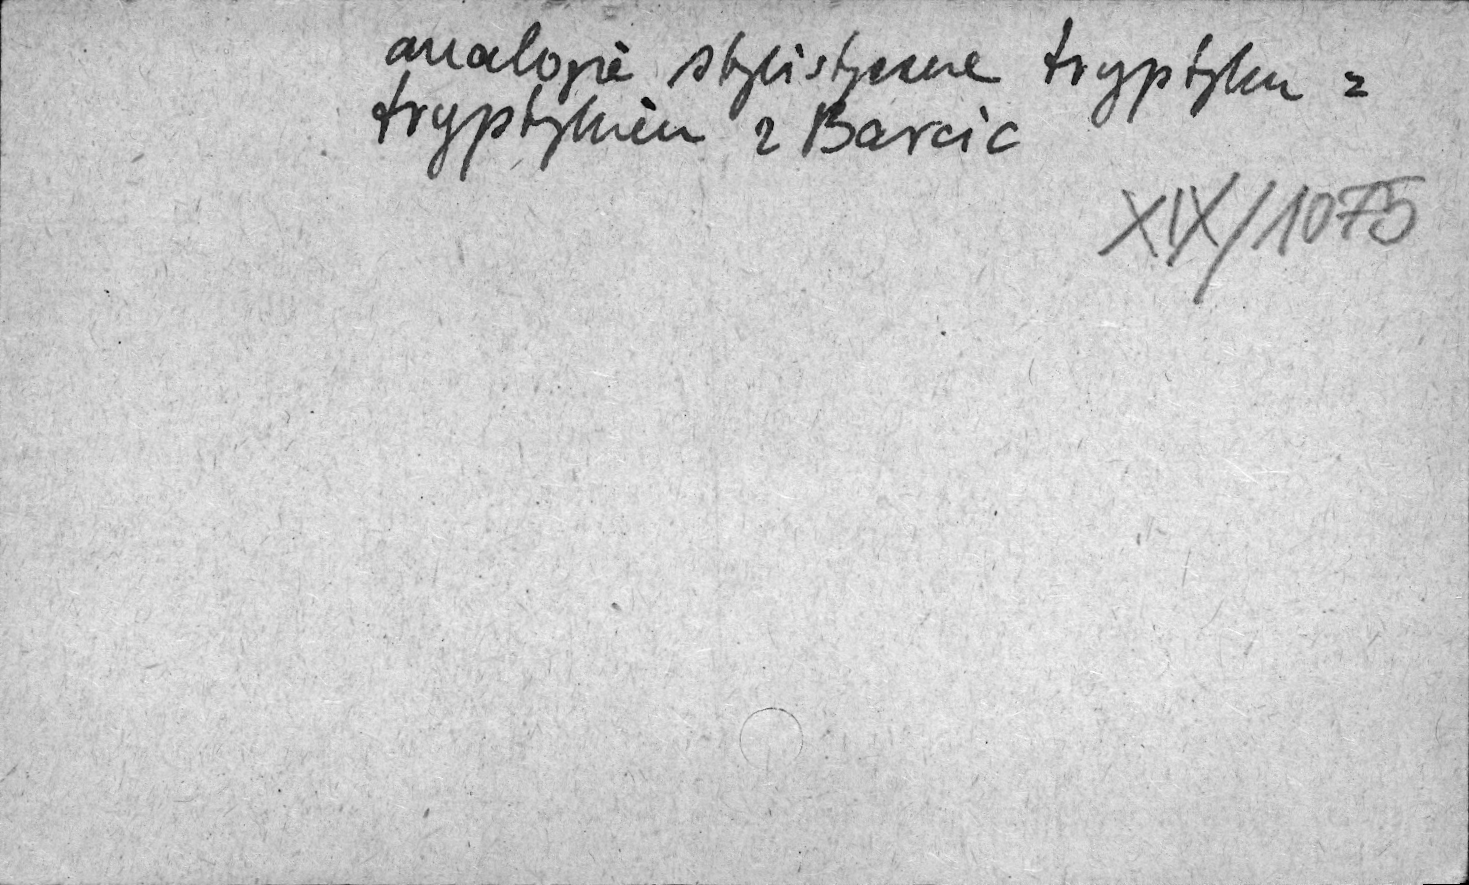 analogie stylistyczne tryptyku z
tryptykiem z Barcic
XIX/1075